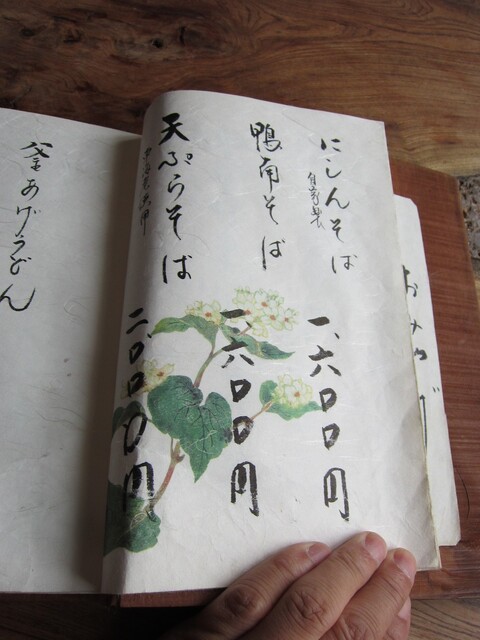 にしんそば
自家製
一、六〇〇円
鴨南そば
一、六〇〇円
天ぷらそば
二〇〇〇円
釜あげうどん